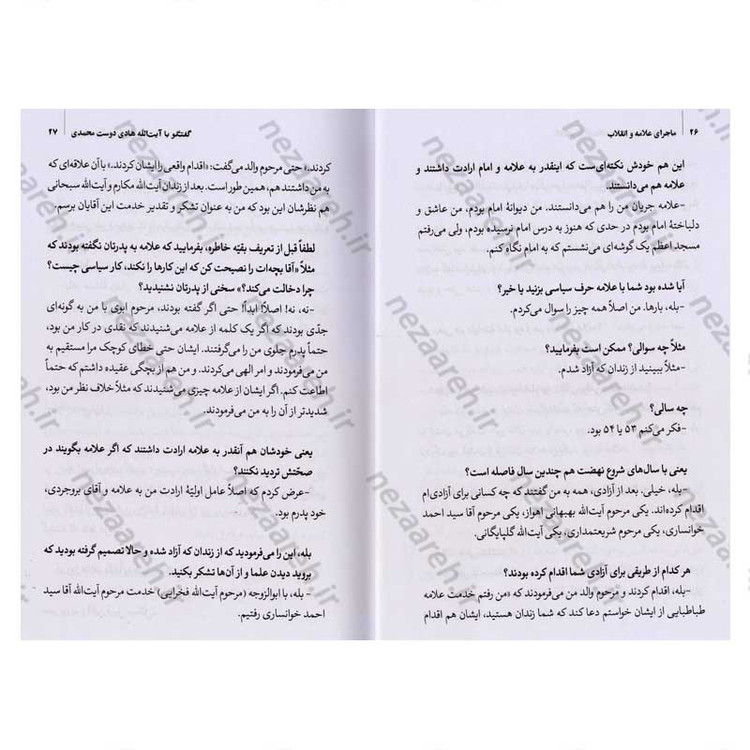 ۲۶ | ماجرای علامه و انقلاب
این هم خودش نکته‌ای‌ست که اینقدر به علامه و امام ارادت داشتند و
علامه هم می‌دانستند.
-علامه جریان من را هم می‌دانستند. من دیوانهٔ امام بودم، من عاشق و
دلباختهٔ امام بودم در حدی که هنوز به درس امام نرسیده بودم، ولی می‌رفتم
مسجد اعظم یک گوشه‌ای می‌نشستم که به امام نگاه کنم.
آیا شده بود شما با علامه حرف سیاسی بزنید یا خیر؟
-بله، بارها. من اصلاً همه چیز را سوال می‌کردم.
مثلاً چه سوالی؟ ممکن است بفرمایید؟
-مثلاً ببینید از زندان که آزاد شدم.
چه سالی؟
-فکر می‌کنم ۵۳ یا ۵۴ بود.
یعنی با سال‌های شروع نهضت هم چندین سال فاصله است؟
-بله، خیلی. بعد از آزادی، همه به من گفتند که چه کسانی برای آزادی‌ام
اقدام کرده‌اند. یکی مرحوم آیت‌الله بهبهانی اهواز، یکی مرحوم آقا سید احمد
خوانساری، یکی مرحوم شریعتمداری، یکی آیت‌الله گلپایگانی.
هر کدام از طریقی برای آزادی شما اقدام کرده بودند؟
-بله، اقدام کردند و مرحوم والد من می‌فرمودند که «من رفتم خدمت علامه
طباطبایی از ایشان خواستم دعا کند که شما زندان هستید، ایشان هم اقدام
گفتگو با آیت‌الله هادی دوست محمدی | ۲۷
کردند.» حتی مرحوم والد می‌گفت: «اقدام واقعی را ایشان کردند.» با آن علاقه‌ای که
به من داشتند هم، همین طور است. بعد از زندان آیت‌الله مکارم و آیت‌الله سبحانی
هم نظرشان این بود که من به عنوان تشکر و تقدیر خدمت این آقایان برسم.
لطفاً قبل از تعریف بقیّه خاطره، بفرمایید که علامه به پدرتان نگفته بودند که
مثلاً «آقا بچه‌ات را نصیحت کن که این کارها را نکند، کار سیاسی چیست؟
چرا دخالت می‌کند؟» سخنی از پدرتان نشنیدید؟
-نه، نه! اصلاً! ابداً! حتی اگر گفته بودند، مرحوم ابوی با من به گونه‌ای
جدّی بودند که اگر یک کلمه از علامه می‌شنیدند که نقدی در کار من بود،
حتماً پدرم جلوی من را می‌گرفتند. ایشان حتی خطای کوچک مرا مستقیم به
من می‌فرمودند و امر الهی می‌کردند. و من هم از بچگی عقیده داشتم که حتماً
اطاعت کنم. اگر ایشان از علامه چیزی می‌شنیدند که مثلاً خلاف نظر من بود،
شدیدتر از آن را به من می‌فرمودند.
یعنی خودشان هم آنقدر به علامه ارادت داشتند که اگر علامه بگویند در
صحّتش تردید نکنند؟
-عرض کردم که اصلاً عامل اولیّهٔ ارادت من به علامه و آقای بروجردی،
خود پدرم بود.
بله، این را می‌فرمودید که از زندان که آزاد شده و حالا تصمیم گرفته بودید که
بروید دیدن علما و از آن‌ها تشکر بکنید.
- بله، با ابوالزوجه (مرحوم آیت‌الله فخرایی) خدمت مرحوم آیت‌الله آقا سید
احمد خوانساری رفتیم.
nezaareh.ir
nezaareh.ir
nezaareh.ir
nezaareh.ir
nezaareh.ir
nezaareh.ir
nezaareh.ir
nezaareh.ir
nezaareh.ir